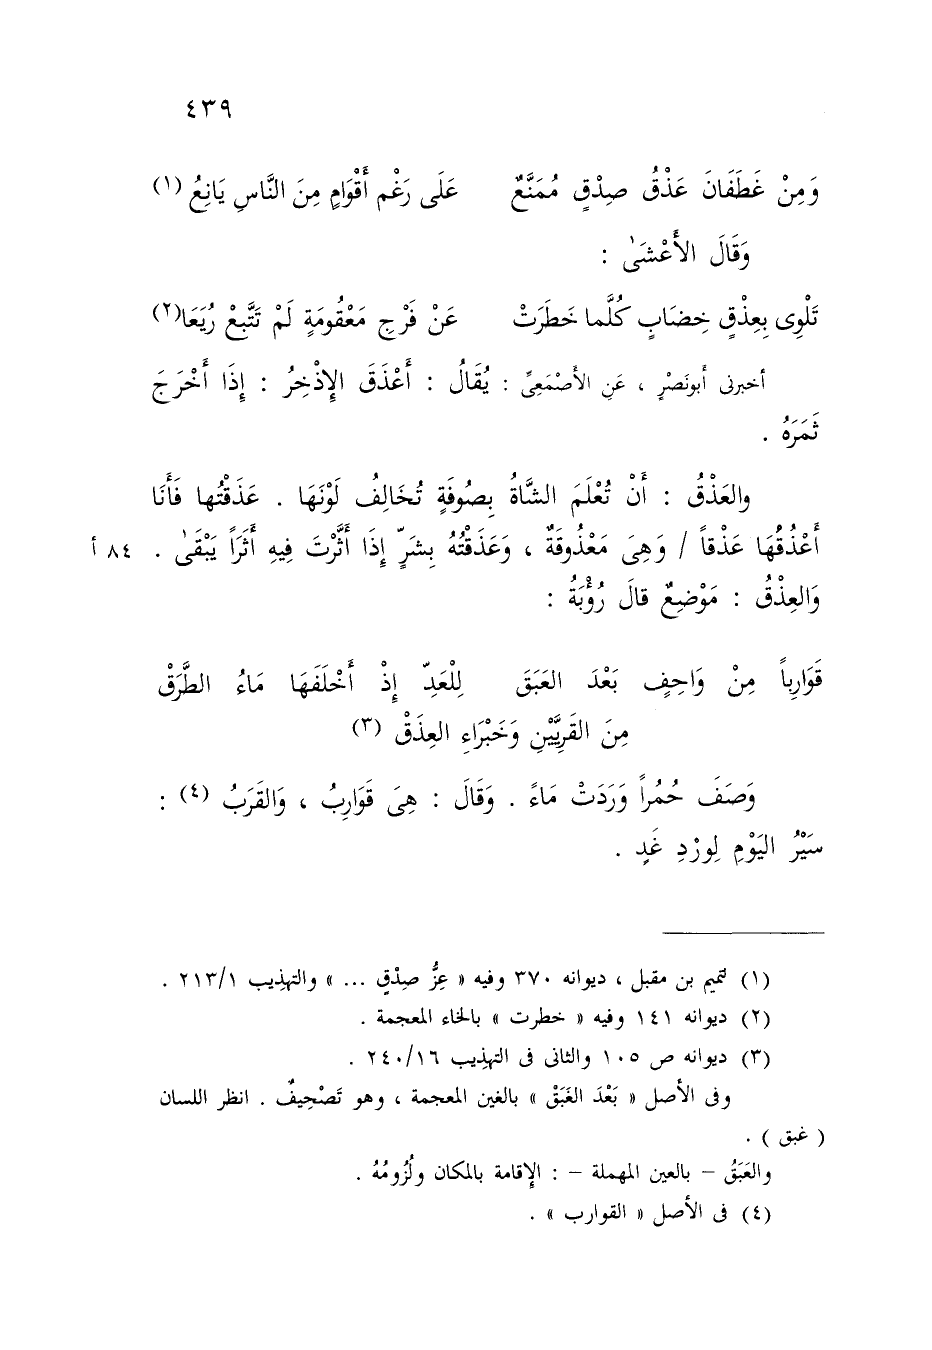 ٤٣٩
وَمِنْ غَطَفَانَ عَذْقُ صِدْقٍ مُمَنَّعٌ عَلَى رَغْمِ أَقْوَامٍ مِنَ النَّاسِ يَانِعُ (١)
وَقَالَ الأَعْشَىٰ :
تَلْوِى بِعِذْقٍ خِضَابٍ كُلَّما خَطَرَتْ عَنْ فَرْجِ مَعْقُومَةٍ لَمْ تَتَّبِعْ رُبَعَا(٢)
أخبرنى أبونَصْرٍ ، عَنِ الأَصْمَعِىِّ : يُقَالُ : أَعْذَقَ الإِذْخِرُ : إِذَا أَخْرَجَ
ثَمَرَهُ .
والعَذْقُ : أَنْ تُعْلَمَ الشَّاةُ بِصُوفَةٍ تُخَالِفُ لَوْنَهَا . عَذَقْتُها فَأَنَا
أَعْذُقُهَا عَذْقاً / وَهِىَ مَعْذُوقَةٌ ، وَعَذَقْتُهُ بِشَرٍّ إِذَا أَثَّرْتَ فِيهِ أَثَرَاً يَبْقَىٰ . ٨٤ أ
وَالعِذْقُ : مَوْضِعٌ قالَ رُؤْبَةُ :
قَوَارِباً مِنْ وَاحِفٍ بَعْدَ العَبَقَ لِلْعَدِّ إِذْ أَخْلَفَهَا مَاءُ الطَّرَقْ
مِنَ القَرِيَّيْنِ وَخَبْرَاءِ العِذَقْ (٣)
وَصَفَ حُمُراً وَرَدَتْ مَاءً . وَقَالَ : هِىَ قَوَارِبُ ، وَالقَرَبُ (٤) :
سَيْرُ اليَوْمِ لِورْدِ غَدٍ .
(١) لتميم بن مقبل ، ديوانه ٣٧٠ وفيه « عِزُّ صِدْقٍ ... » والتهذيب ٢١٣/١ .
(٢) ديوانه ١٤١ وفيه « خطرت » بالخاء المعجمة .
(٣) ديوانه ص ١٠٥ والثانى فى التهذيب ٢٤٠/١٦ .
وفى الأصل « بَعْدَ الغَبَقْ » بالغين المعجمة ، وهو تَصْحِيفٌ . انظر اللسان
( غبق ) .
والعَبَقُ – بالعين المهملة – : الإقامة بالمكان ولُزُومُهُ .
(٤) فى الأصل « القوارب » .